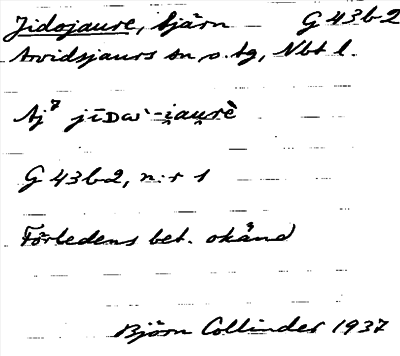 Jidojaure, tjärn G 43b2
Arvidsjaurs sn o. tg, Nbt l.
Aj⁷ jīDω`-i̯au̯rè
G 43b2, n:r 1
Förledens bet. okänd
Björn Collinder 1937